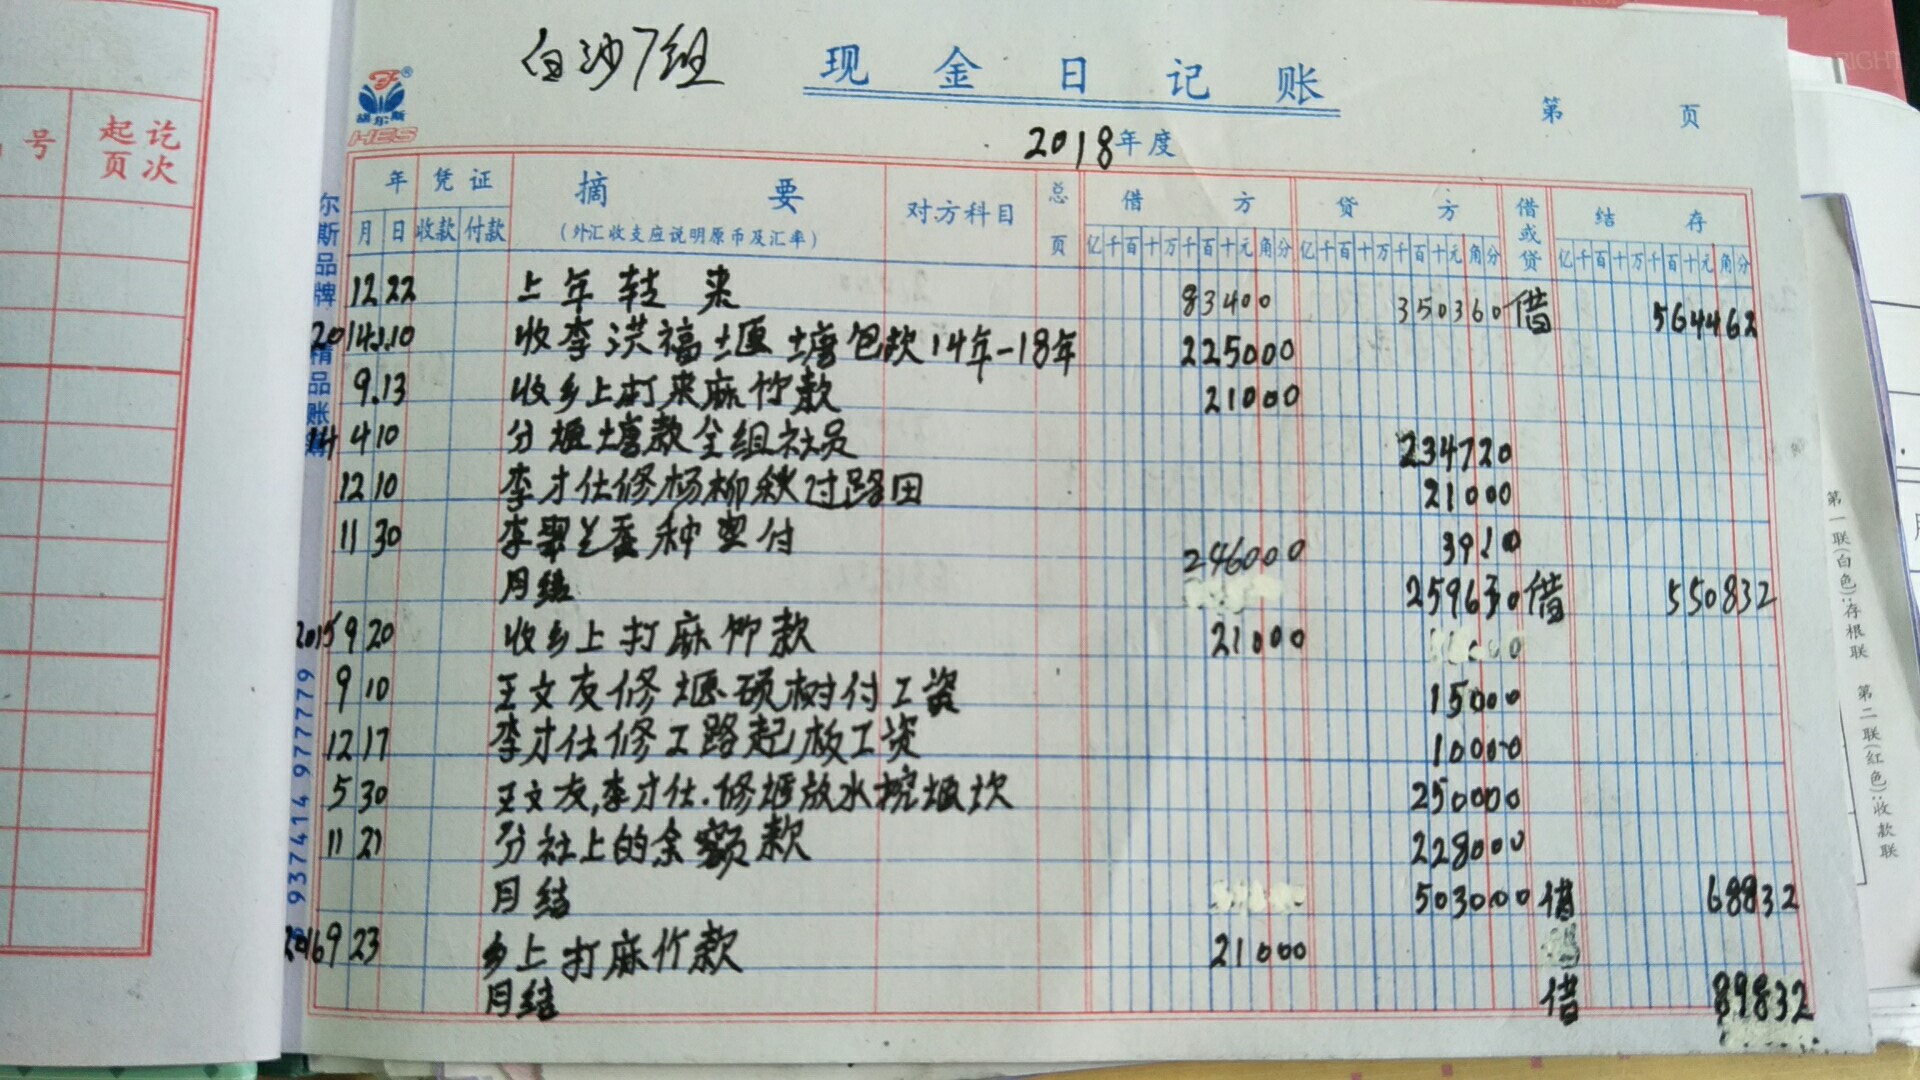 白沙7组 现金日记账
第 页
2018年度
胡尔斯
HES
号 起讫页次
年 凭证 摘要 对方科目 总页 借方 贷方 借或贷 结存
月 日 收款 付款 (外汇收支应说明原币及汇率) 亿千百十万千百十元角分 亿千百十万千百十元角分 亿千百十万千百十元角分
12 22 上年转来 83400 350360 借 564462
2014.1.10 收李洪福堰塘包款14年-18年 225000
9.13 收乡上打来麻竹款 21000
14 4 10 分堰塘款全组社员 234720
12 10 李才仕修杨柳秧过路田 21000
11 30 李翠兰蚕种 付 3910
246000
月结 259630 借 550832
2015 9 20 收乡上打麻竹款 21000
9 10 王文友修堰砍树付工资 15000
12 17 李才仕修工路起板工资 10000
5 30 王文友,李才仕.修堰放水挖堰坎 250000
11 21 分社上的余额款 228000
月结 503000 借 68832
2016 9 23 乡上打麻竹款 21000
月结 借 89832
尔斯品牌 精品账
9937414 9777779
第一联(白色):存根联 第二联(红色):收款联
RIGHT